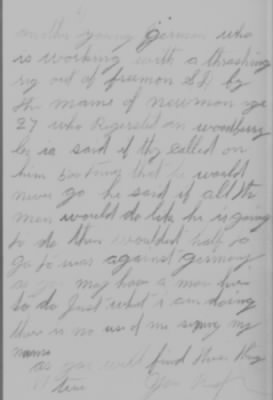 another young german who
is working with a thrashing
rig out of freemon S D by
the name of newmon age
27 who Rigersted in woodberry
he is said if they called on
him that he would
never go he said if all the
men would do like he is going
to do then wouldent half so
go to war against germany
as you may have a man here
to do Just what i am doing
there is no use of me signing my
name
as you will find these things
true